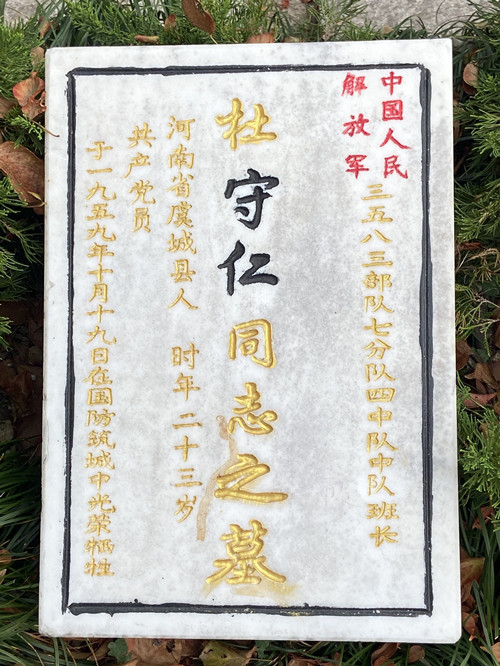 中国人民
解放军
三五八三部队七分队四中队中队班长
杜守仁同志之墓
河南省虞城县人 时年二十三岁
共产党员
于一九五九年十月十九日在国防筑城中光荣牺牲